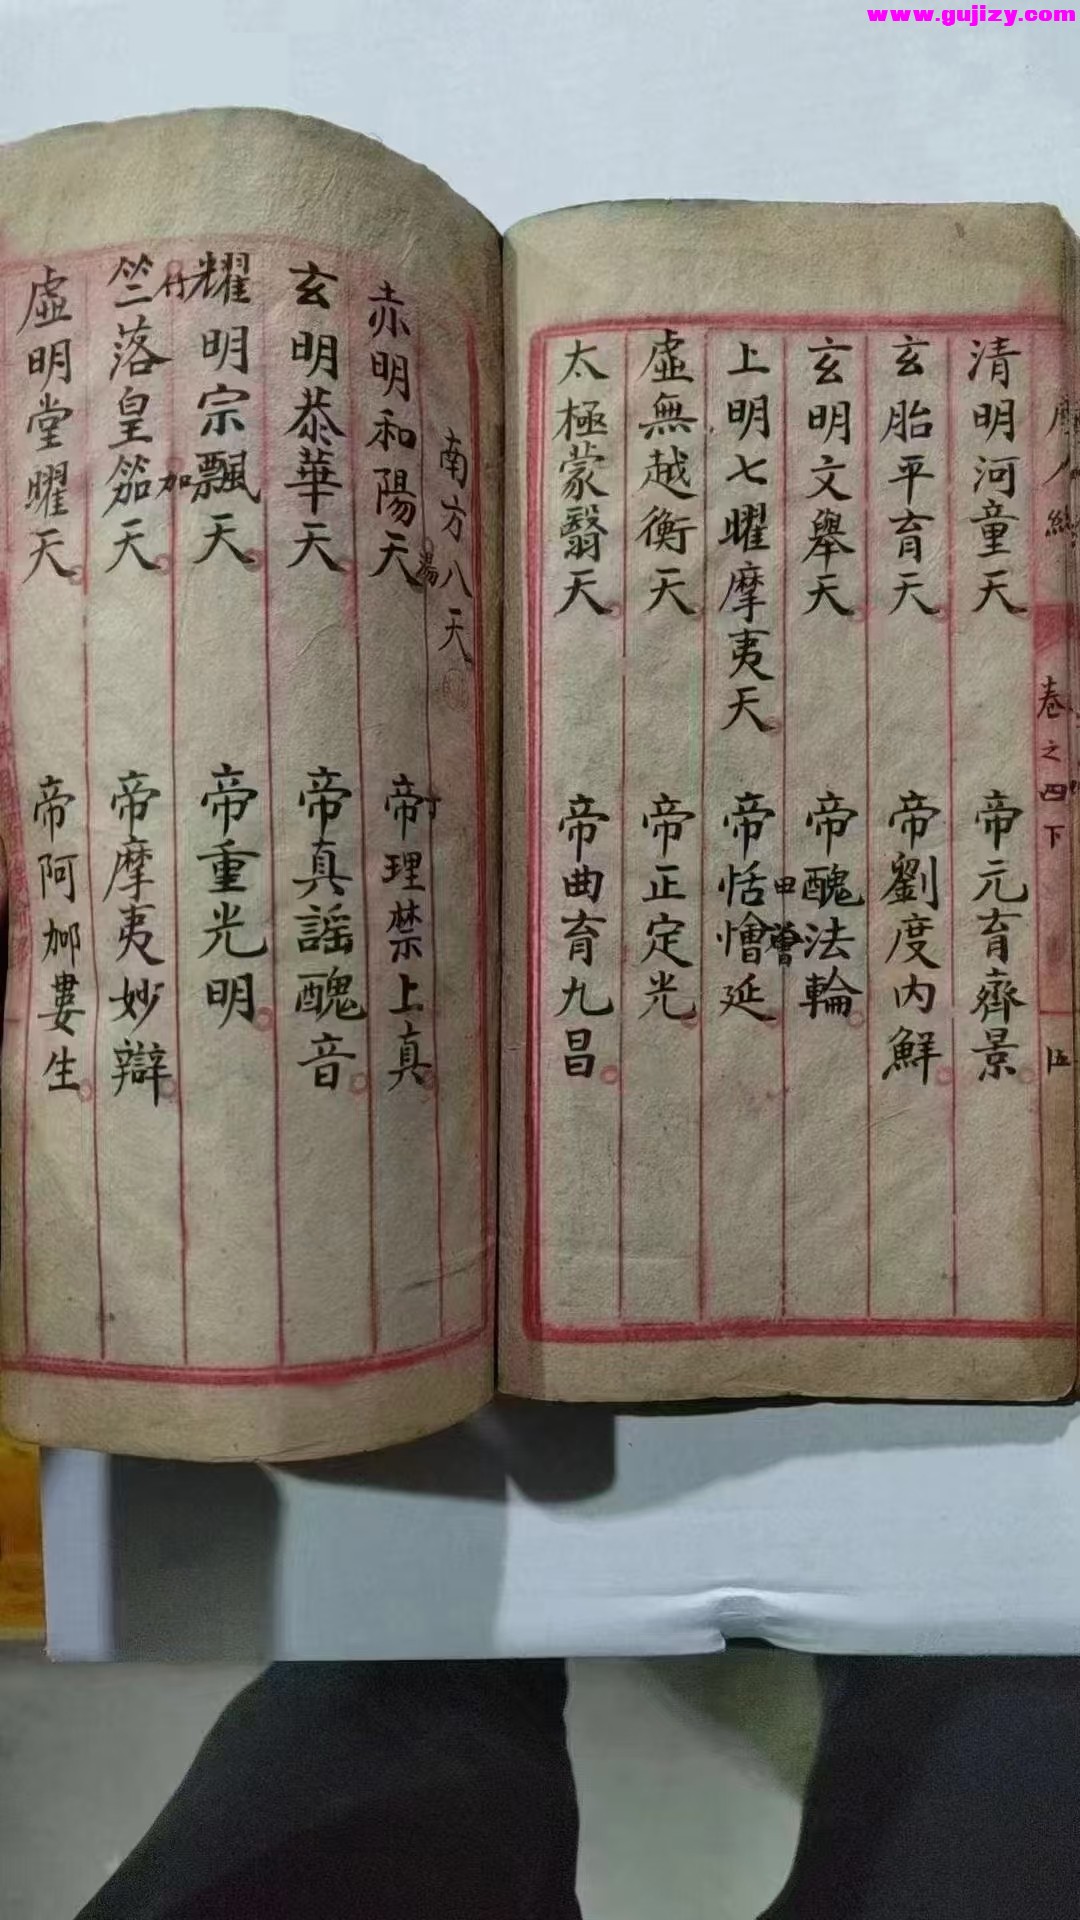 www.gujizy.com
卷之四下
清明河童天 帝元育齊景
玄胎平育天 帝劉度內鮮
玄明文舉天 帝醜法輪
上明七曜摩夷天 帝恬憎延
虛無越衡天 帝正定光
太極蒙翳天 帝曲育九昌
南方八天
赤明和陽天 帝理禁上真
湯
玄明恭華天 帝真謡醜音
耀明宗飄天 帝重光明
竹
加
竺落皇笳天 帝摩夷妙辯
虛明堂曜天 帝阿𨚗婁生